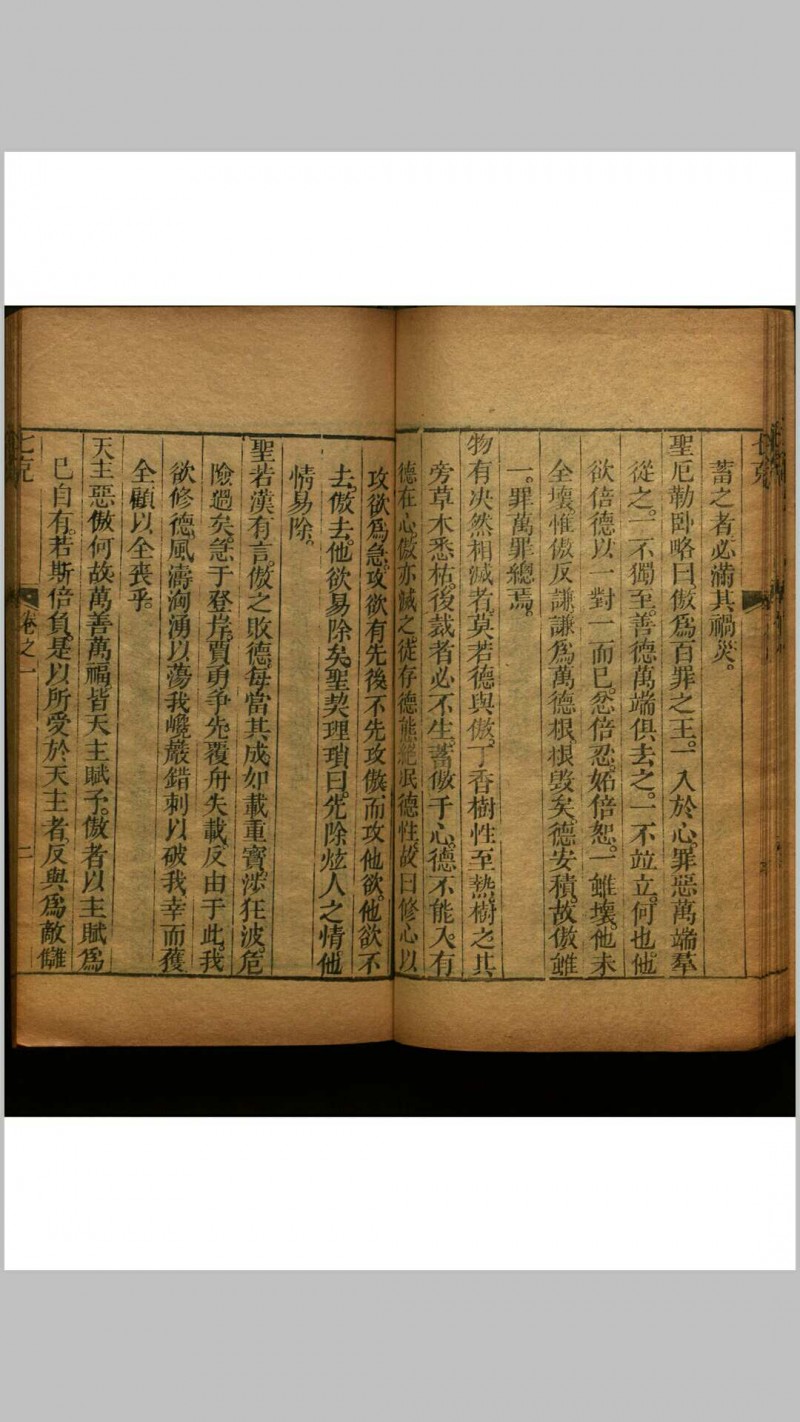 七克
蓄之者必滿其禍災。
聖厄勒卧略曰。傲爲百罪之王。一入於心。罪惡萬端羣
從之。一不獨至。善德萬端俱去之。一不竝立。何也。他
欲倍德以一對一而已。忿倍忍。妬倍恕。一雖壞。他未
全壞。惟傲反謙。謙爲萬德根。根毀矣。德安積。故傲雖
一。罪萬罪總焉。
物有決然相滅者。莫若德與傲。丁香樹性至熱。樹之其
旁草木悉枯。後裁者必不生。蓄傲于心。德不能入。有
德在心。傲亦滅之。徒存德態。絕泯德性。故曰修心以
攻欲爲急。攻欲有先後。不先攻傲。而攻他欲。他欲不
去。傲去。他欲易除矣。聖契理瑣曰。先除炫人之情。他
情易除。
聖若漢有言。傲之敗德。每當其成。如載重寶。涉狂波。危
險過矣。急于登岸。賈勇爭先。覆舟失載。反由于此。我
欲修德。風濤洶湧以蕩我。巉巖錯刺以破我。幸而獲
全。顧以全喪乎。
天主惡傲何故。萬善萬福。皆天主賦予。傲者以主賦爲
已自有。若斯倍負。是以所愛於天主者。反與爲敵讎
七克
卷之一
二